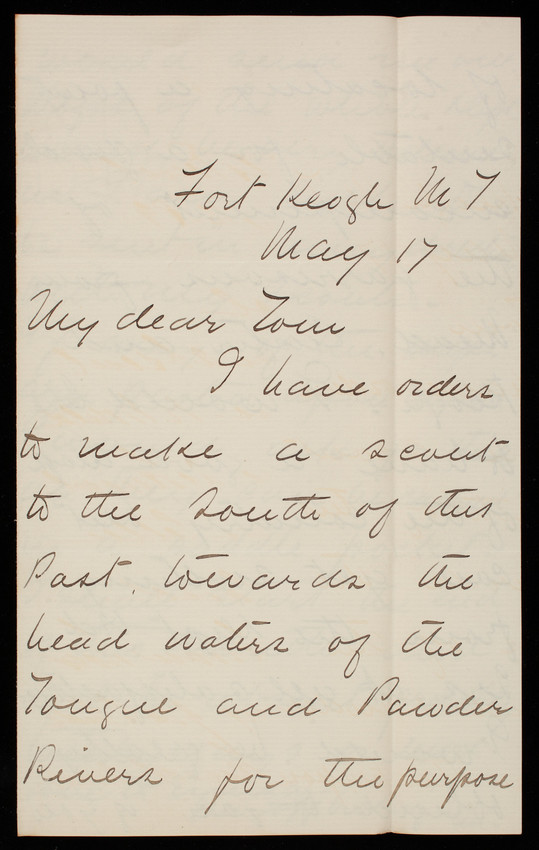 Fort Keogh M T
May 17
My dear Tom
I have orders
to make a scout
to the South of this
Post. towards the
head waters of the
Tongue and Powder
Rivers for the purpose